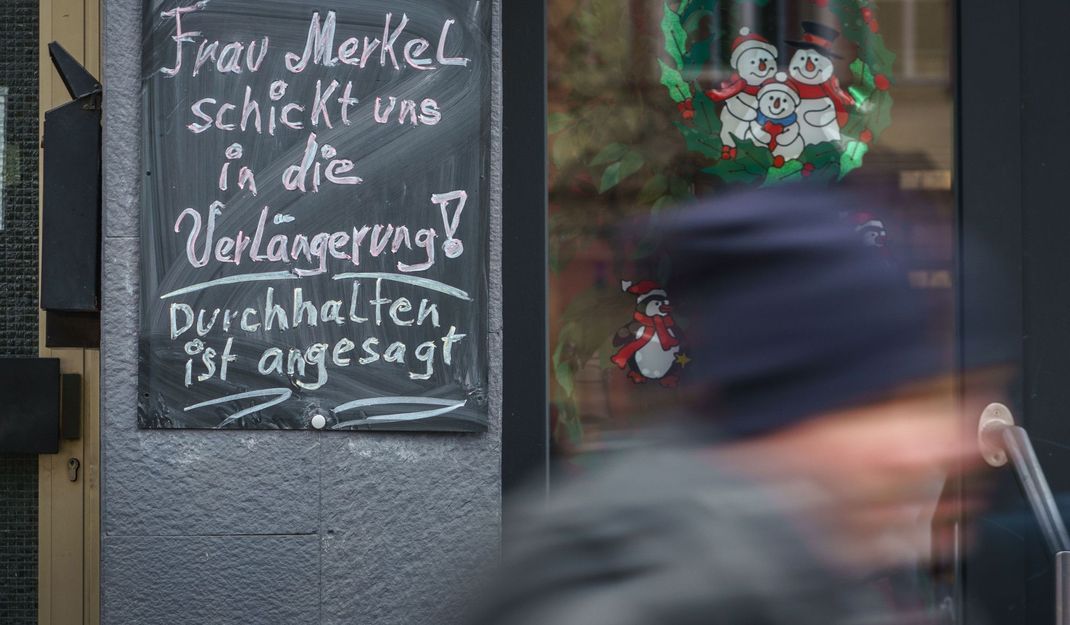 Frau Merkel
schickt uns
in die
Verlängerung!
Durchhalten
ist angesagt